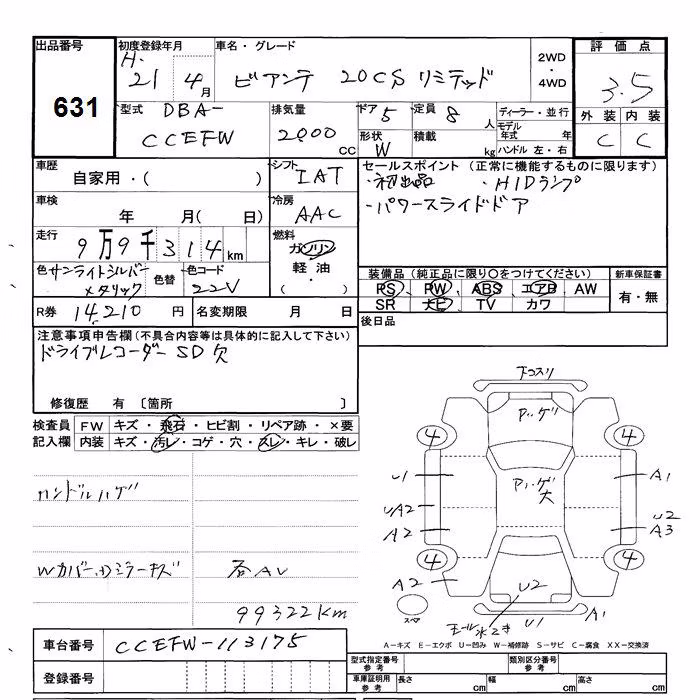 出品番号 631
初度登録年月 H. 21 4月
車名・グレード ビアンテ 20CS リミテッド
2WD ・ 4WD
評価点 3.5
外装 内装
C C
型式 DBA- CCEFW
排気量 2000 CC
ドア 5
定員 8 人
形状 W
積載 kg
ディーラー・並行
モデル年式 年
ハンドル 左・右
車歴 自家用・( )
シフト IAT
車検 年 月( 日)
冷房 AAC
走行 9万9千314km
燃料 ガソリン 軽油・ ( )
色 サンライトシルバーメタリック
色替
色コード 22V
R券 14,210 円
名変期限 月 日
セールスポイント(正常に機能するものに限ります)
・初出品 ・HIDランプ
・パワースライドドア
装備品(純正品に限り○をつけてください)
新車保証書
PS PW ABS エアB AW
SR ナビ TV カワ
有・無
後日品
注意事項申告欄(不具合内容等は具体的に記入して下さい)
ドライブレコーダーSD欠
修復歴 有 〔箇所 〕
検査員記入欄
FW キズ・飛石・ヒビ割・リペア跡・×要
内装 キズ・汚レ・コゲ・穴・スレ・キレ・破レ
ハンドルハゲ
Wカバー,Dミラーキズ
99322Km
下コスリ
4 4
U1 A1
UA2 U2
A2 A3
4 4
A2 U2
スペア
U1 A1
A-キズ E-エクボ U-凹み W-補修跡 S-サビ C-腐食 XX-交換済
車台番号 CCEFW-113175
登録番号
型式指定番号 参考
類別区分番号 参考
車庫証明用 参考
長さ cm 幅 cm 高さ cm